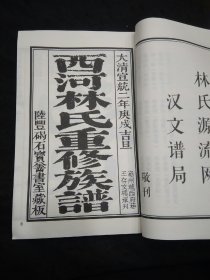 林氏源流网
汉文谱局
敬刊
大清宣統二年庚戌吉旦
西河林氏重修族譜
陸豐碣石寶書室藏板